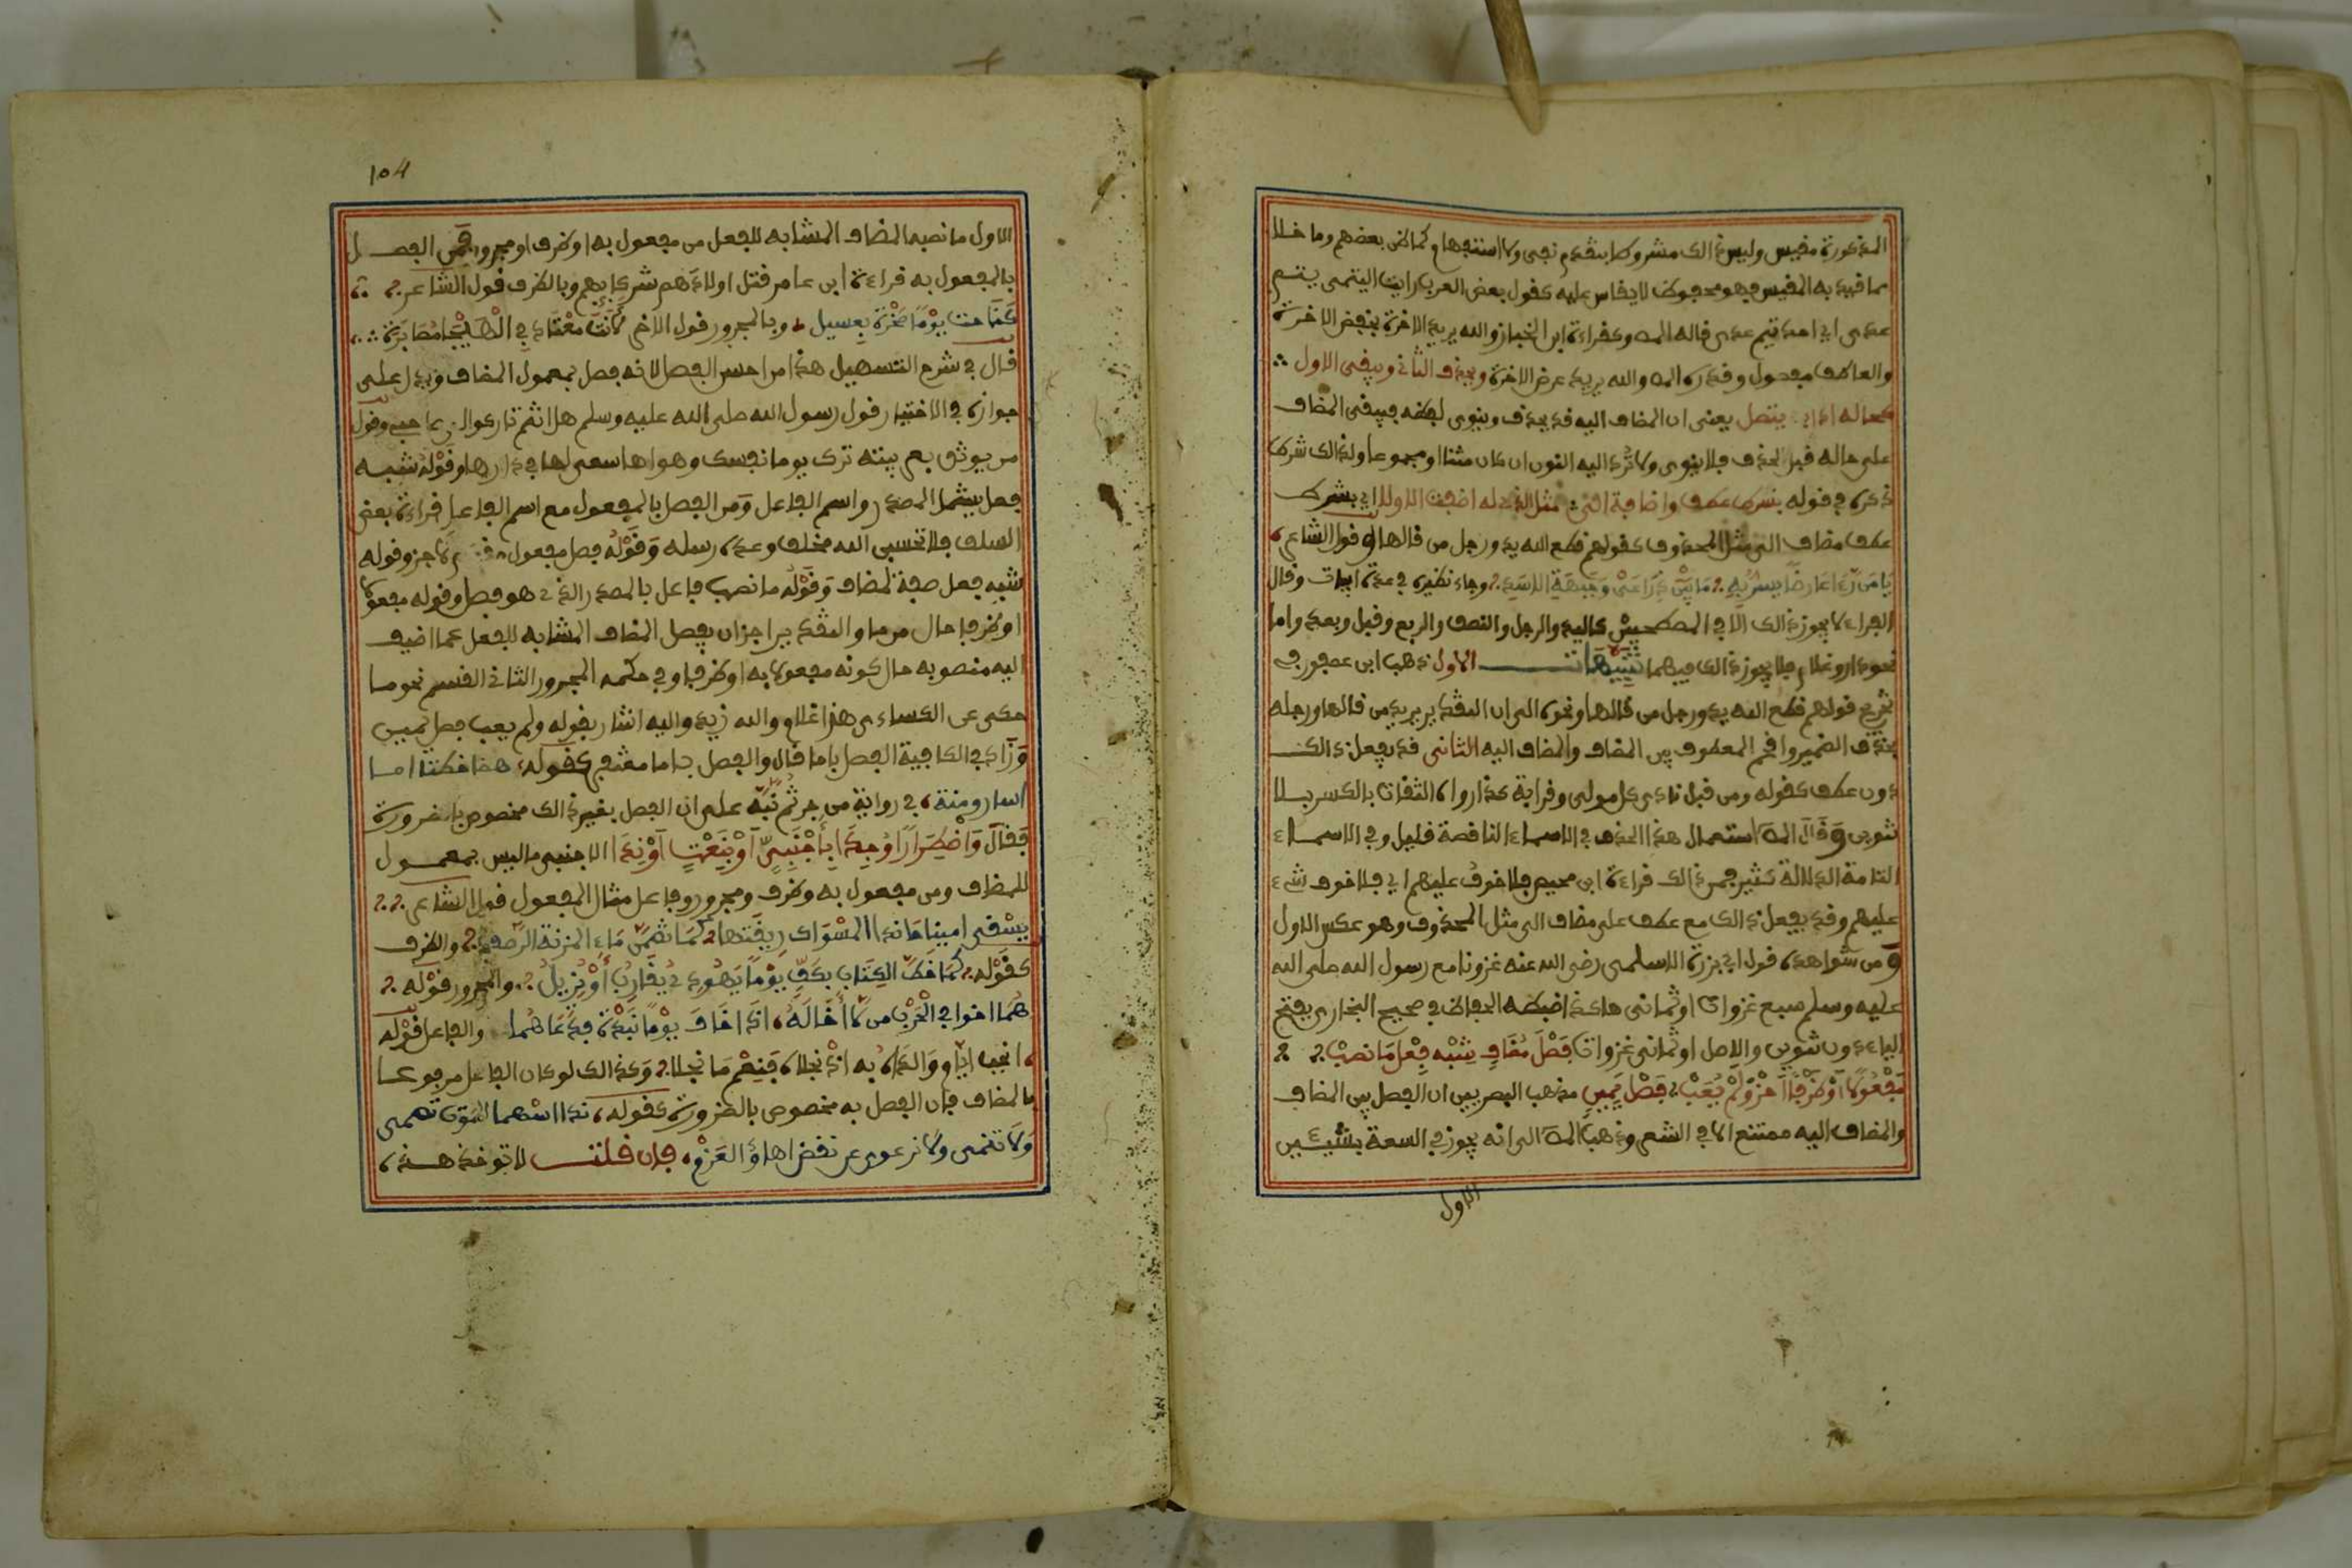 المذكورة مقيس وليس ذالك مشروطا بتقدم نجى ولا استفهام كما ظن بعضهم وما خلا
مما قيد به المقيس فهو محفوظ لا يقاس عليه كقول بعض العرب رايت التيمى تيم
عدى اي احد تيم عدى قاله المص وكقراءة ابن الجماز والله يريد الاخرة بخفض الاخرة
والعاطف مفصول وقدره المص والله يريد عرض الاخرة ويحذف الثاني ويبقى الاول
كحاله اذا به يتصل يعنى ان المضاف اليه قد يحذف وينوى لفظه فيبقى المضاف
على حاله قبل الحذف فلا ينون ولا ترد اليه النون ان كان مثنا او مجموعا ولذالك شرط
ذكره في قوله بشرط عطف واضافة الى مثل الذي له اضفت الاولا اي بشرط
عطف مضاف الى مثل المحذوف كقولهم قطع الله يد ورجل من قالها وقول الشاعر
يا من رءا عارضا يسر به ما بين ذراعى وجبهة الاسد وجاء نظيره في عدة ابيات وقال
الفراء لا يجوز ذالك الا في المصطحبين كاليد والرجل والنصف والربع وقبل وبعد واما
نحو دار وغلام فلا يجوز ذالك فيهما تنبيهات الاول ذهب ابن عصفور في
تخريج قولهم قطع الله يد ورجل من قالها ونحوه الى ان التقدير يد من قالها ورجله
بحذف الضمير واقحم المعطوف بين المضاف والمضاف اليه الثاني قد يفعل ذالك
دون عطف كقوله ومن قبل نادى كل مولى وقرابة كذا رواه الثقات بالكسر بلا
تنوين وقال المص استعمال هذا الحذف في الاسماء الناقصة قليل وفي الاسماء
التامة الدلالة كثير فمن ذالك قراءة ابن محيصن فلا خوف عليهم اي فلا خوف شيء
عليهم وقد يفعل ذالك مع عطف على مضاف الى مثل المحذوف وهو عكس الاول
ومن شواهده قول ابي برزة الاسلمى رضى الله عنه غزونا مع رسول الله صلى الله
عليه وسلم سبع غزوات او ثمانى هاكذا ضبطه الحفاظ في صحيح البخارى بفتح
الياء دون تنوين والاصل او ثمانى غزوات فصل مضاف شبه فعل ما نصب
مفعولا او ظرفا اجز ولم يعب فصل يمين مذهب البصريين ان الفصل بين المضاف
والمضاف اليه ممتنع الا في الشعر وذهب المص الى انه يجوز في السعة بشيئين
الاول
104
الاول ما نصبه المضاف المشابه للفعل من مفعول به او ظرف او مجرور فمن الفصل
بالمفعول به قراءة ابن عامر قتل اولادهم شركايهم وبالظرف قول الشاعر
كناحت يوما صخرة بعسيل وبالمجرور قول الاخر لانت معتاد في الهيجا مصابرة
قال في شرح التسهيل هذا من احسن الفصل لانه فصل بمعمول المضاف ويدل على
جوازه في الاختيار قول رسول الله صلى الله عليه وسلم هل انتم تاركوا لي صاحبي وقول
من يوثق بعربيته ترك يوما نفسك وهواها سعى لها في رداها وقوله شبه
فعل يشمل المصدر واسم الفاعل ومن الفصل بالمفعول مع اسم الفاعل قراءة بعض
السلف فلا تحسبن الله مخلف وعده رسله وقوله فصل مفعول مقدم لاجز وقوله
شبه فعل صفة لمضاف وقوله ما نصب فاعل بالمصدر الذي هو فصل وقوله مفعولا
او ظرفا حال من ما والتقدير اجز ان يفصل المضاف المشابه للفعل عما اضيف
اليه منصوبه حال كونه مفعولا به او ظرفا وفي حكمه المجرور الثاني القسم نحو ما
حكى عن الكساءى هذا غلام والله زيد واليه اشار بقوله ولم يعب فصل يمين
وزاد في الكافية الفصل باما قال والفصل باما مغتفر كقوله هما خطتا اما
اسار ومنة في رواية من جر ثم نبه على ان الفصل بغير ذالك مخصوص بالضرورة
فقال واضطرارا وجدا باجنبي او بنعت او ندا الاجنبى ما ليس بمعمول
للمضاف ومن مفعول به وظرف ومجرور وفاعل مثال المفعول قول الشاعر
يسقى امتياحا ندا المسواك ريقتها كما تضمن ماء المزنة الرصف والظرف
كقوله كما خط الكتاب بكف يوما يهودي يقارب او يزيل والمجرور قوله
هما اخوا في الحرب من لا اخا له اذا خاف يوما نبوة فدعاهما والفاعل قوله
انجب ايام والداه به اذ نجلاه فنعم ما نجلا وكذالك لو كان الفاعل مرفوعا
بالمضاف فان الفصل به مخصوص بالضرورة كقوله ندا اسهما للموت تصمى
ولا تنمى ولا نرعوى عن نقض اهواؤ العزم فان قلت لا توخذ هذه